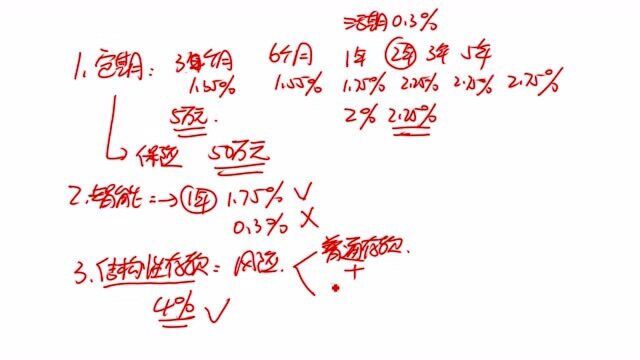 活期0.3%
1.定期: 3个月 6个月 1年 2年 3年 5年
1.35% 1.55% 1.75% 2.25% 2.75% 2.75%
5万元. 2% 2.25%
保险 50万元
2.智能=→1年 1.75% ✓
0.3% ✗
普通存款.
3.结构性存款= 风险 +
4% ✓